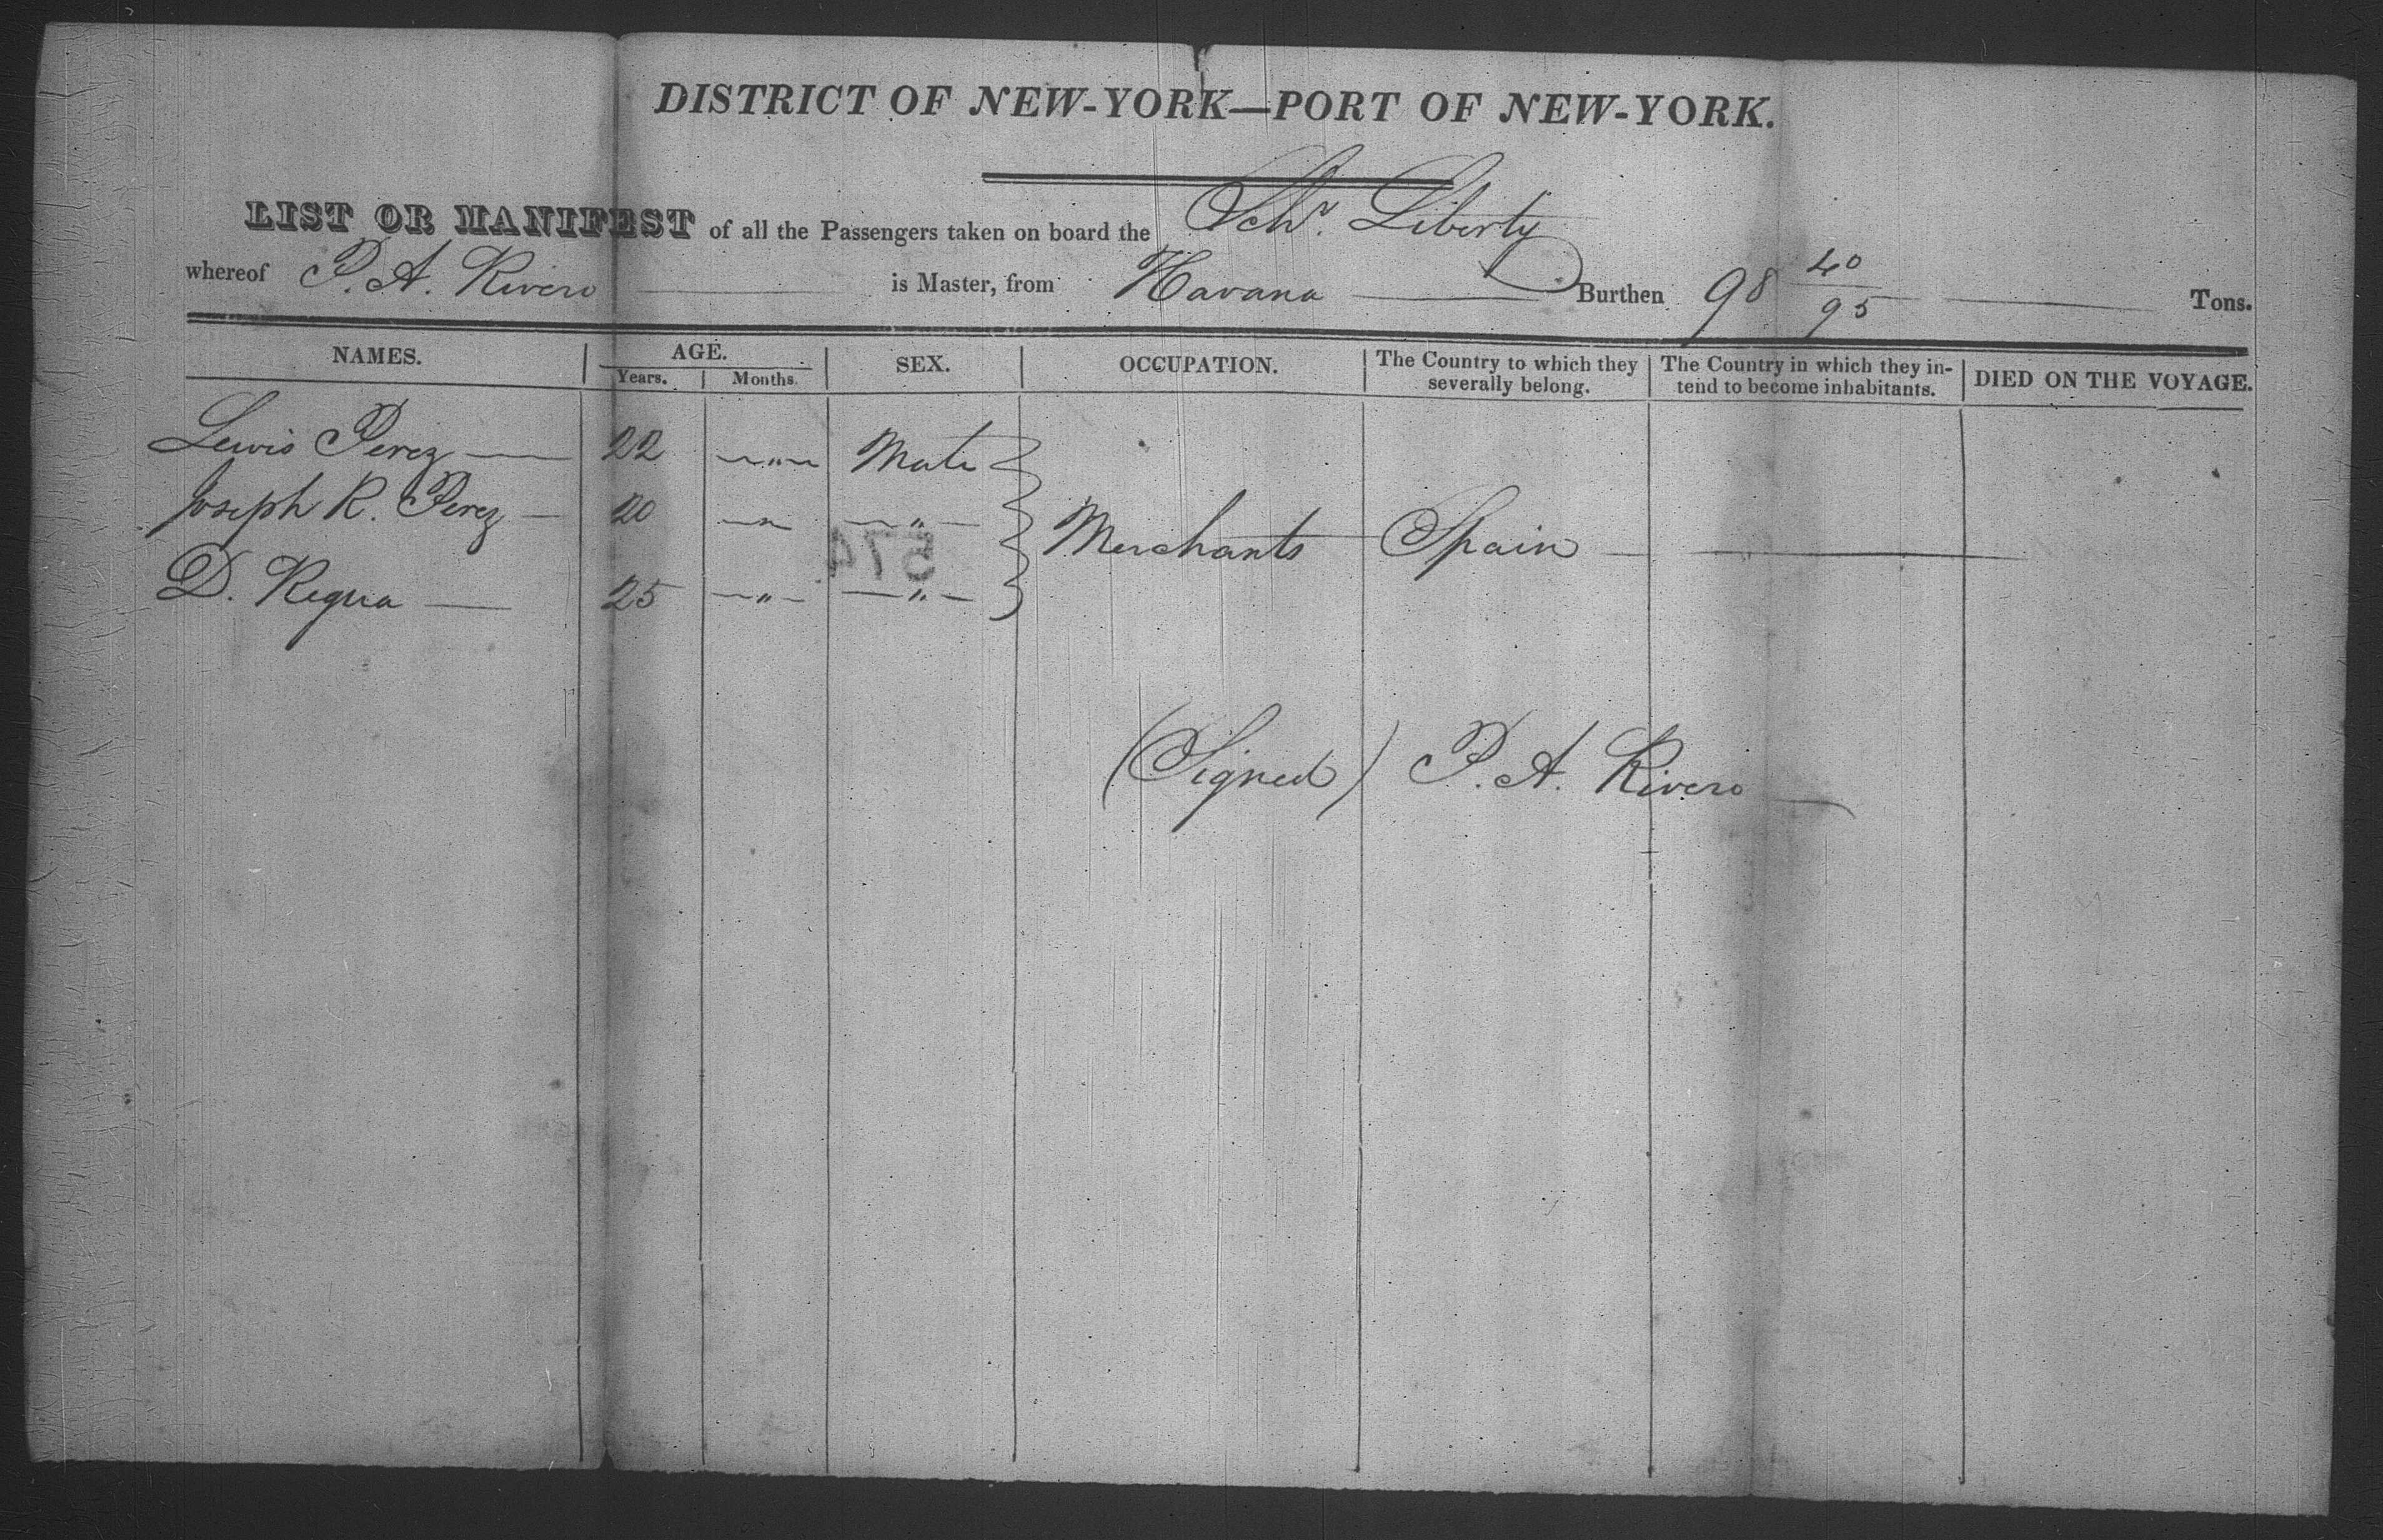 DISTRICT OF NEW-YORK—PORT OF NEW-YORK.
LIST OR MANIFEST of all the Passengers taken on board the Schr. Liberty
whereof P. A. Rivero is Master, from Havana Burthen 98 40/95 Tons.
NAMES. AGE. SEX. OCCUPATION. The Country to which they severally belong. The Country in which they in- tend to become inhabitants. DIED ON THE VOYAGE.
Years. Months.
Lewis Perez — 22 — " — Male
Joseph R. Perez — 20 — " — — " —
Merchants Spain —
574
D. Regua — 25 — " — — " —
(Signed) P. A. Rivero